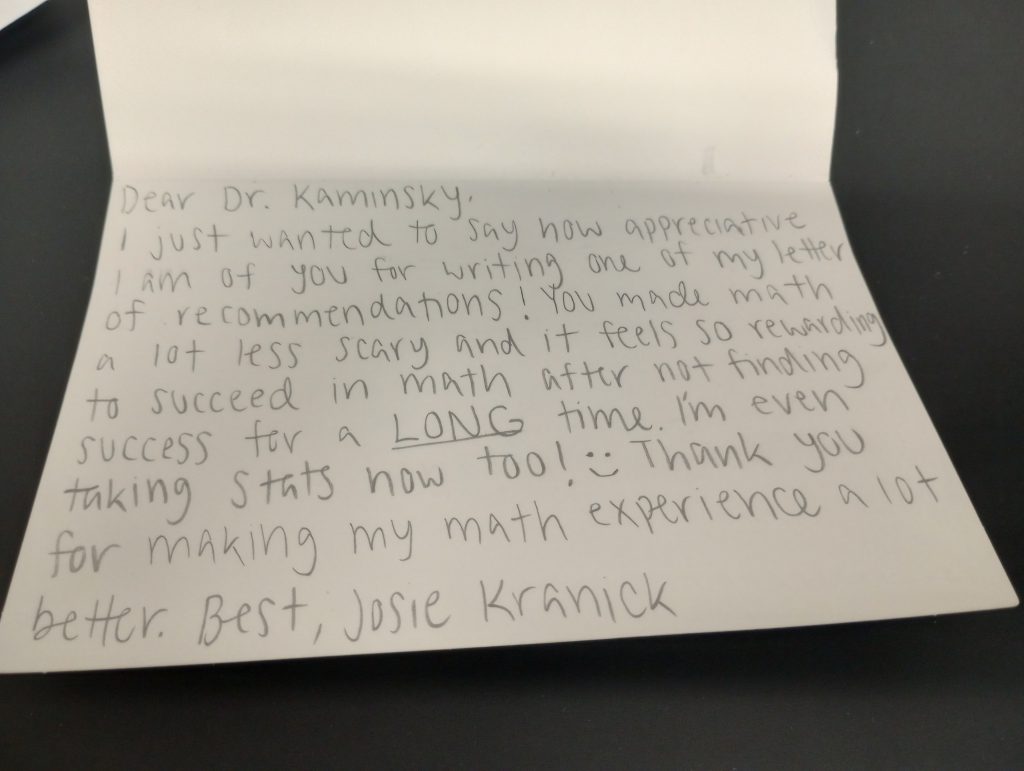 Dear Dr. Kaminsky,
I just wanted to say how appreciative
I am of you for writing one of my letter
of recommendations! You made math
a lot less scary and it feels so rewarding
to succeed in math after not finding
success for a LONG time. I'm even
taking Stats now too! :) Thank you
for making my math experience a lot
better. Best, Josie Kranick